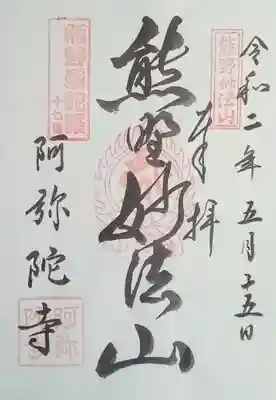 熊野妙法山
令和二年五月十五日
奉拝
熊野妙法山
阿弥陀寺
阿弥陀寺